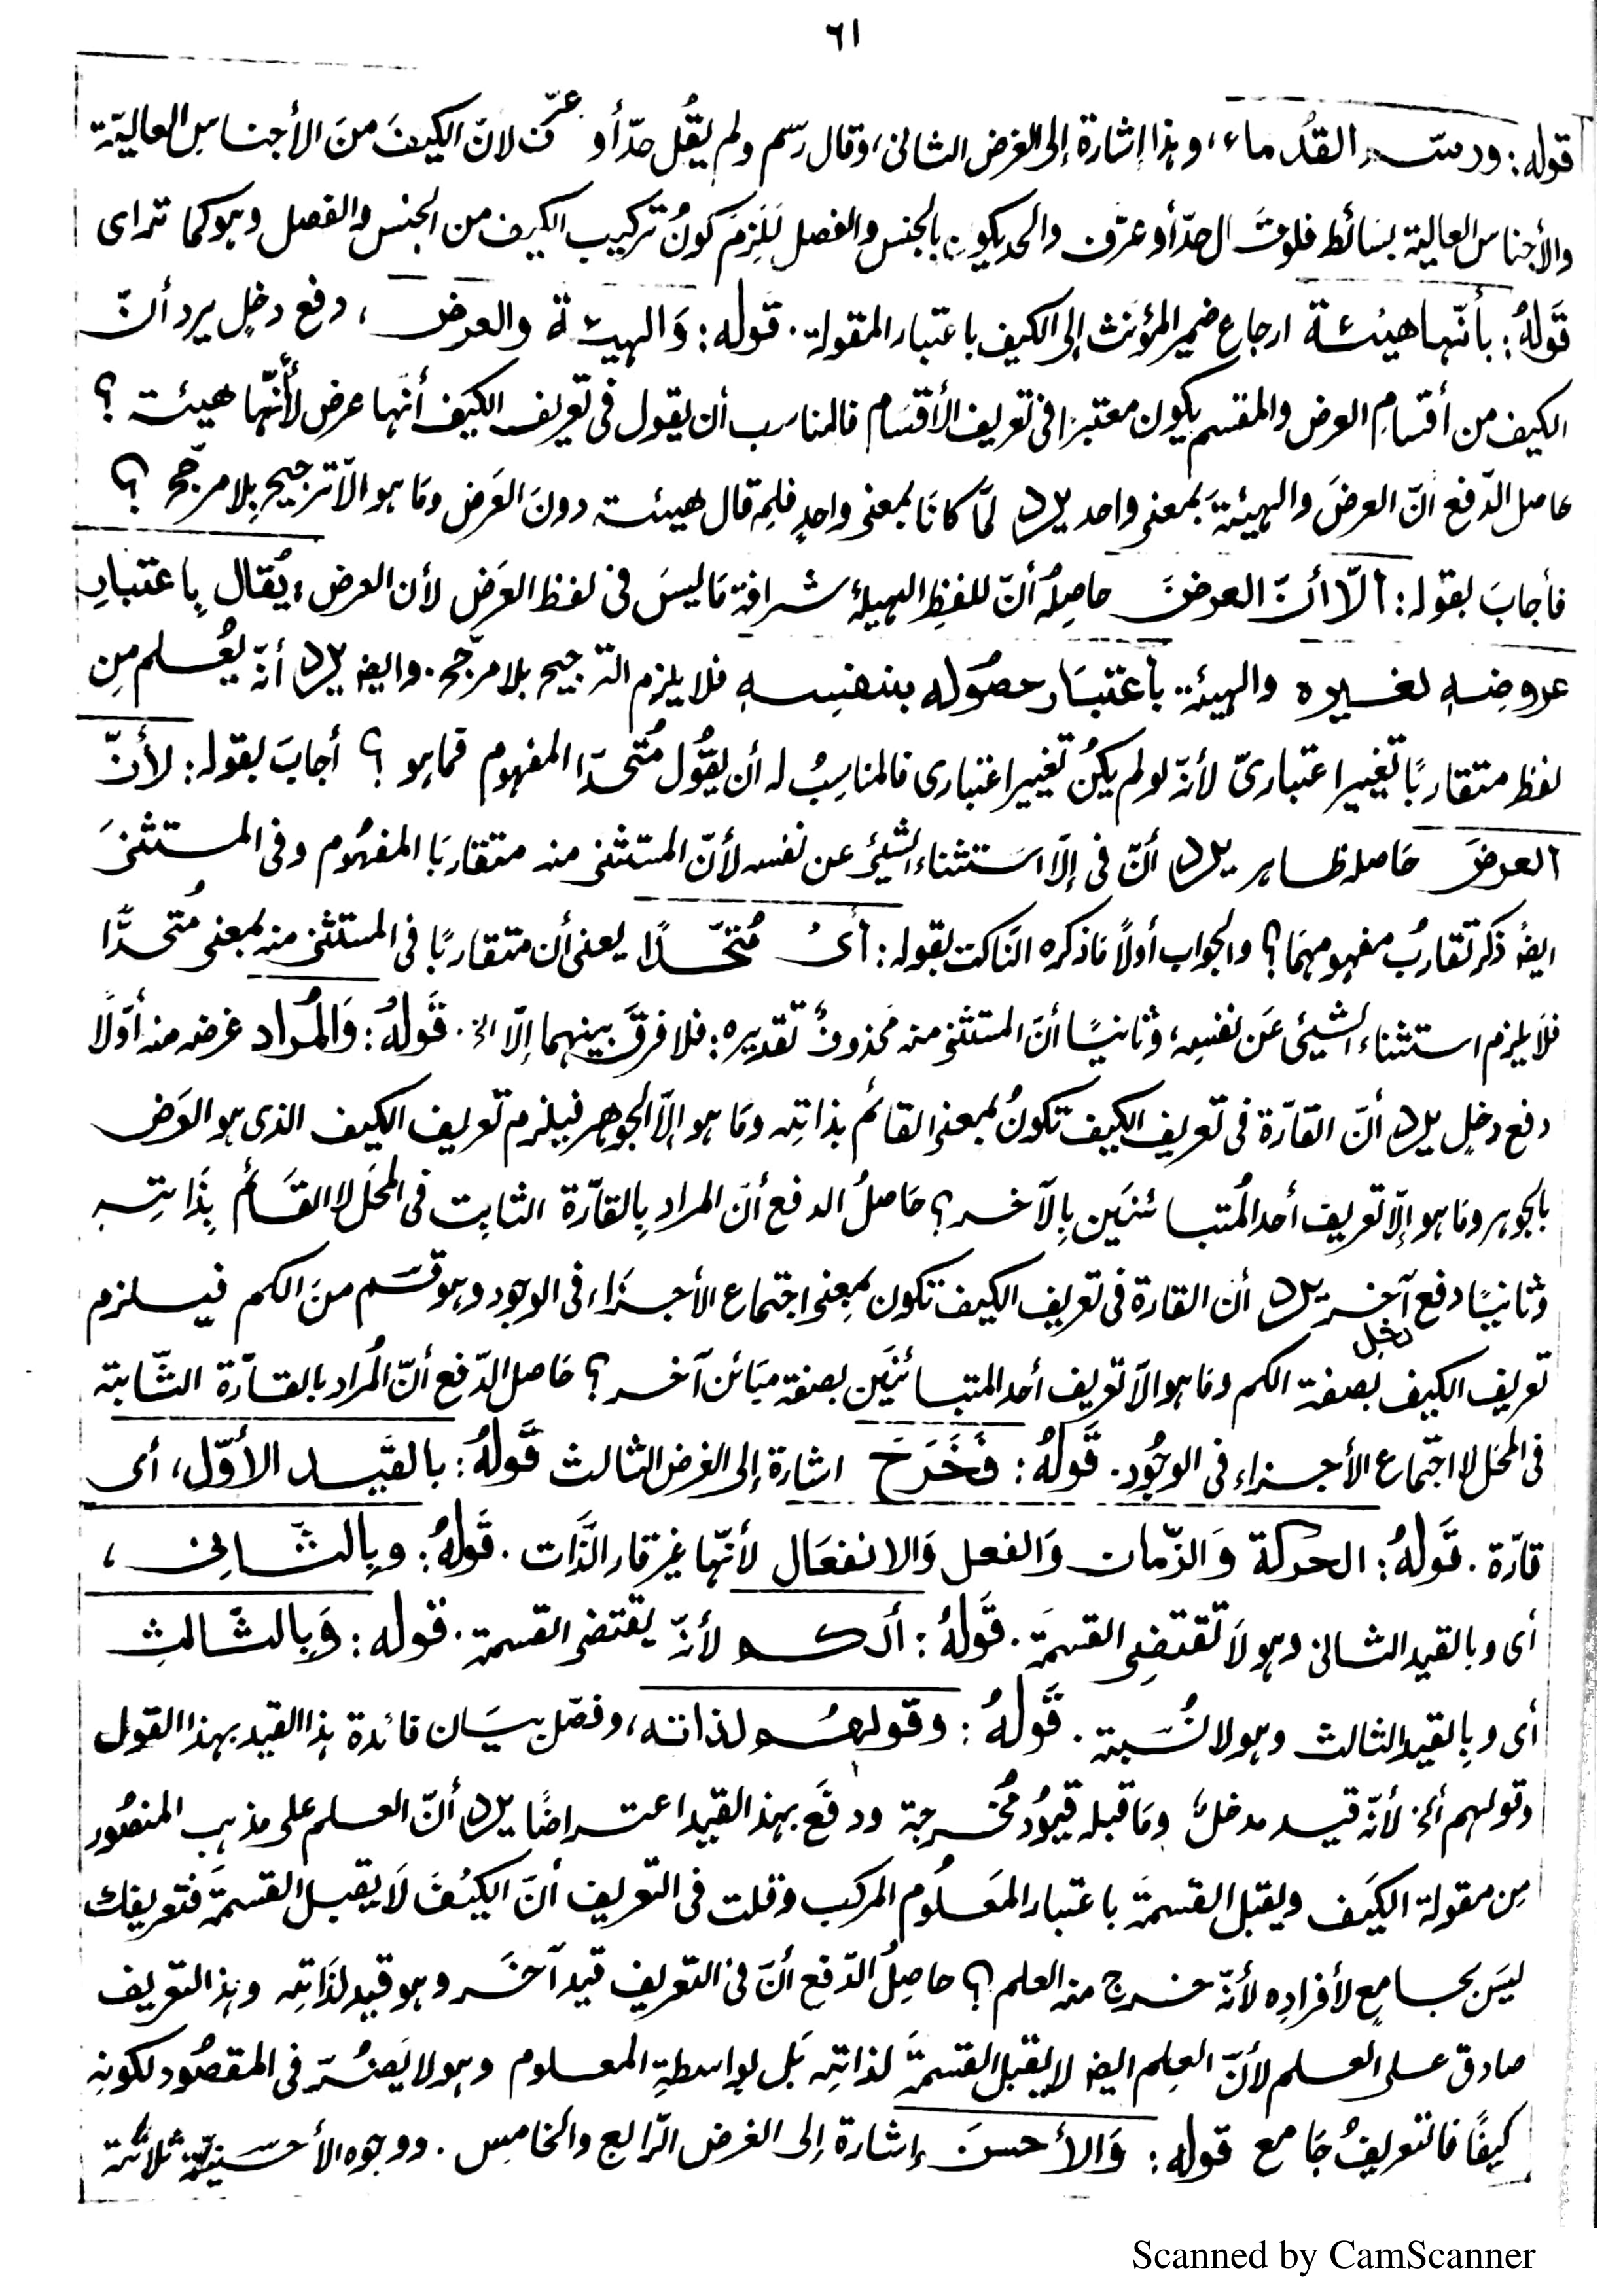 ٦١
قوله: ورسم القُدماء، وهذا إشارة إلى الغرض الثانى، وقال رسم ولم يقُل حدّ أو عرّف لانّ الكيفَ منَ الأجناسِ العاليّة
والأجناس العالية بسَائط فلو قَال حدّ أو عرّف والحد يكون بالجنس والفصل لَلَزِمَ كونُ تركيب الكيف من الجنس والفصل وهو كما تراى
قَولهُ: بأنّها هيئة ارجاع ضمير المؤنث إلى الكيف باعتبار المقولة. قوله: وَالهيئة والعرض، دفع دخلٍ يرد أنّ
الكيف من أقسامِ العرض والمقسم يكون معتبرًا فى تعريف الأقسَام فالمناسب أن يقول فى تعريف الكيف أنّها عرض لأنّها هيئة ؟
حاصل الدّفع انّ العرضَ والهيئةَ بمعنى واحد يرد لمّا كانَا بمعنى واحدٍ فلِمَ قال هيئة دونَ العَرض ومَا هو الاّ ترجيح بِلا مرجّح ؟
فأجابَ بقوله: الاّ أنّ العرضَ حاصِلهُ أنّ للفظِ الهيئة شرافة مَا ليسَ فى لفظ العَرَض لأن العرض، يُقال بِاعتبارِ
عروضِهِ لغيره والهيئة بأعتبَار حصُوله بنفسِهِ فلا يلزم الترجيح بلا مرجّح. وايضا يرد أنّه يُعلم مِن
لفظ متقاربًا تغيير اعتبارىّ لأنّه لو لم يكُن تغيير اعتبارى فالمناسِبُ له أن يقُول مُتّحدَا المفهوم فما هو ؟ أجابَ بقوله: لأنّ
العرضَ حَاصله ظاهر يرد أنّ فى إلّا استثناء الشيئ عن نفسه لأنّ المستثنى منه متقاربَا المفهُوم وفى المستثنىَ
ايضًا ذكر تقاربُ مفهومهمَا ؟ والجواب أولاً مَا ذكره النّاكت بقوله: أىْ مُتّحدًا يعنى أن متقاربًا فى المستثنى منه بمعنى مُتحدًّا
فلاَ يلزم استثناء الشيئى عَن نفسِه، وثانيًا أنّ المستثنى منه محذوفٌ تقديره: فلا فرقَ بينهما إلّا الخ. قَولهُ: وَالمُراد غرضه منه أوّلاً
دفع دخلٍ يرد أنّ القارّة فى تعريف الكيف تكونُ بمعنى القائم بذاتِه ومَا هو إلّا الجوهر فيلزم تعريف الكيف الذى هو العَرض
بالجوهر ومَا هو إلاّ تعريف أحد المُتبائنَين بِالآخر ؟ حَاصلُ الدفع أنّ المراد بِالقارّة الثابِت فى المحَل لا القَائم بِذَاتِه
وثانيًا دفع آخر يرد أن القارة فى تعريف الكيف تكون بمعنى اجتماع الأجزَاء فى الوجود وهو قسَم منَ الكم فيلزم
دخل
تعريف الكيف بصفة الكم ومَا هو الاّ تعريف أحد المتبائنَين بصفة مبَائن آخر ؟ حَاصل الدّفع أنّ المُراد بالقارّة الثّابتة
فى المحَل لا اجتماع الأجزاء فى الوجُود. قَولهُ: فَخَرَجَ اشارة إلى الغرض الثالث قَولهُ: بالقَيد الأوّل، أى
قارّة. قَولهُ: الحركة وَالزّمان وَالفعل وَالانفعَال لأنّها غير قار الذَّات. قَولهُ: وبِالثَّانِى،
أى وبالقيد الثانى وهو لاَ تقتضِى القسمَة. قَولهُ: الكم لأنّه يقتضى القسمة. قوله: وَبِالثَّالثِ
أى وبِالقيد الثالث وهو لا نُسبة. قَولهُ: وقولهُم لذاته، وفصّل بيَان فائدة هذا القيد بهذا القول
وقولهم الخ لأنّه قيد مدخلٌ ومَا قبله قيُودٌ مُخرجة ودفَع بهذ القيد اعتراضًا يرد أنّ العلم على مذهب المنصُور
مِن مقولة الكيَف ويقبل القسمَة باعتبار المَعلُوم المركب وقلت فى التعريف أنّ الكيُفَ لاَ يقبل القسمَة فتعريفك
ليسَ بجامعٍ لأفرادِه لأنّه خرج منه العلم ؟ حاصِلُ الدّفع أنّ فى التّعريف قيد آخَر وهو قيد لذَاتِه وهذ التعريف
صادق على العلم لأنّ العِلم ايضا لا يقبل القسمَةَ لذاتِه بَل بواسطةِ المعلوم وهو لا يَضُرّ فى المقصُود لكونِه
كيفًا فالتعريفُ جَامع قوله: وَالأحسنَ إشارة إلى الغرض الرّابع والخامِس. ووجوه الأحسنيّة ثلاثة
Scanned by CamScanner